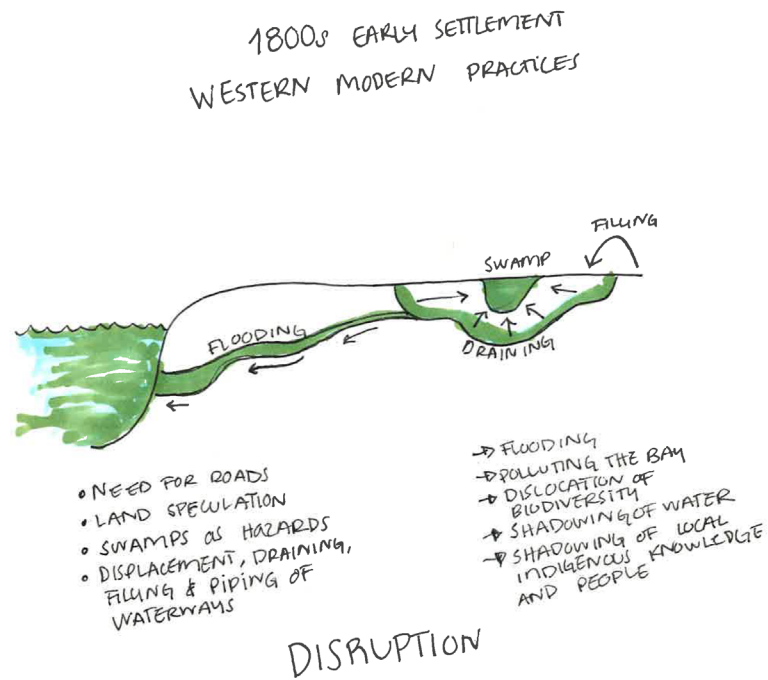 1800s EARLY SETTLEMENT
WESTERN MODERN PRACTICES
FILLING
SWAMP
FLOODING
DRAINING
• NEED FOR ROADS
• LAND SPECULATION
• SWAMPS as HAZARDS
• DISPLACEMENT, DRAINING,
FILLING & PIPING OF
WATERWAYS
→ FLOODING
→ POLLUTING THE BAY
→ DISLOCATION OF
BIODIVERSITY
→ SHADOWING OF WATER
→ SHADOWING OF LOCAL
INDIGENOUS KNOWLEDGE
AND PEOPLE
DISRUPTION